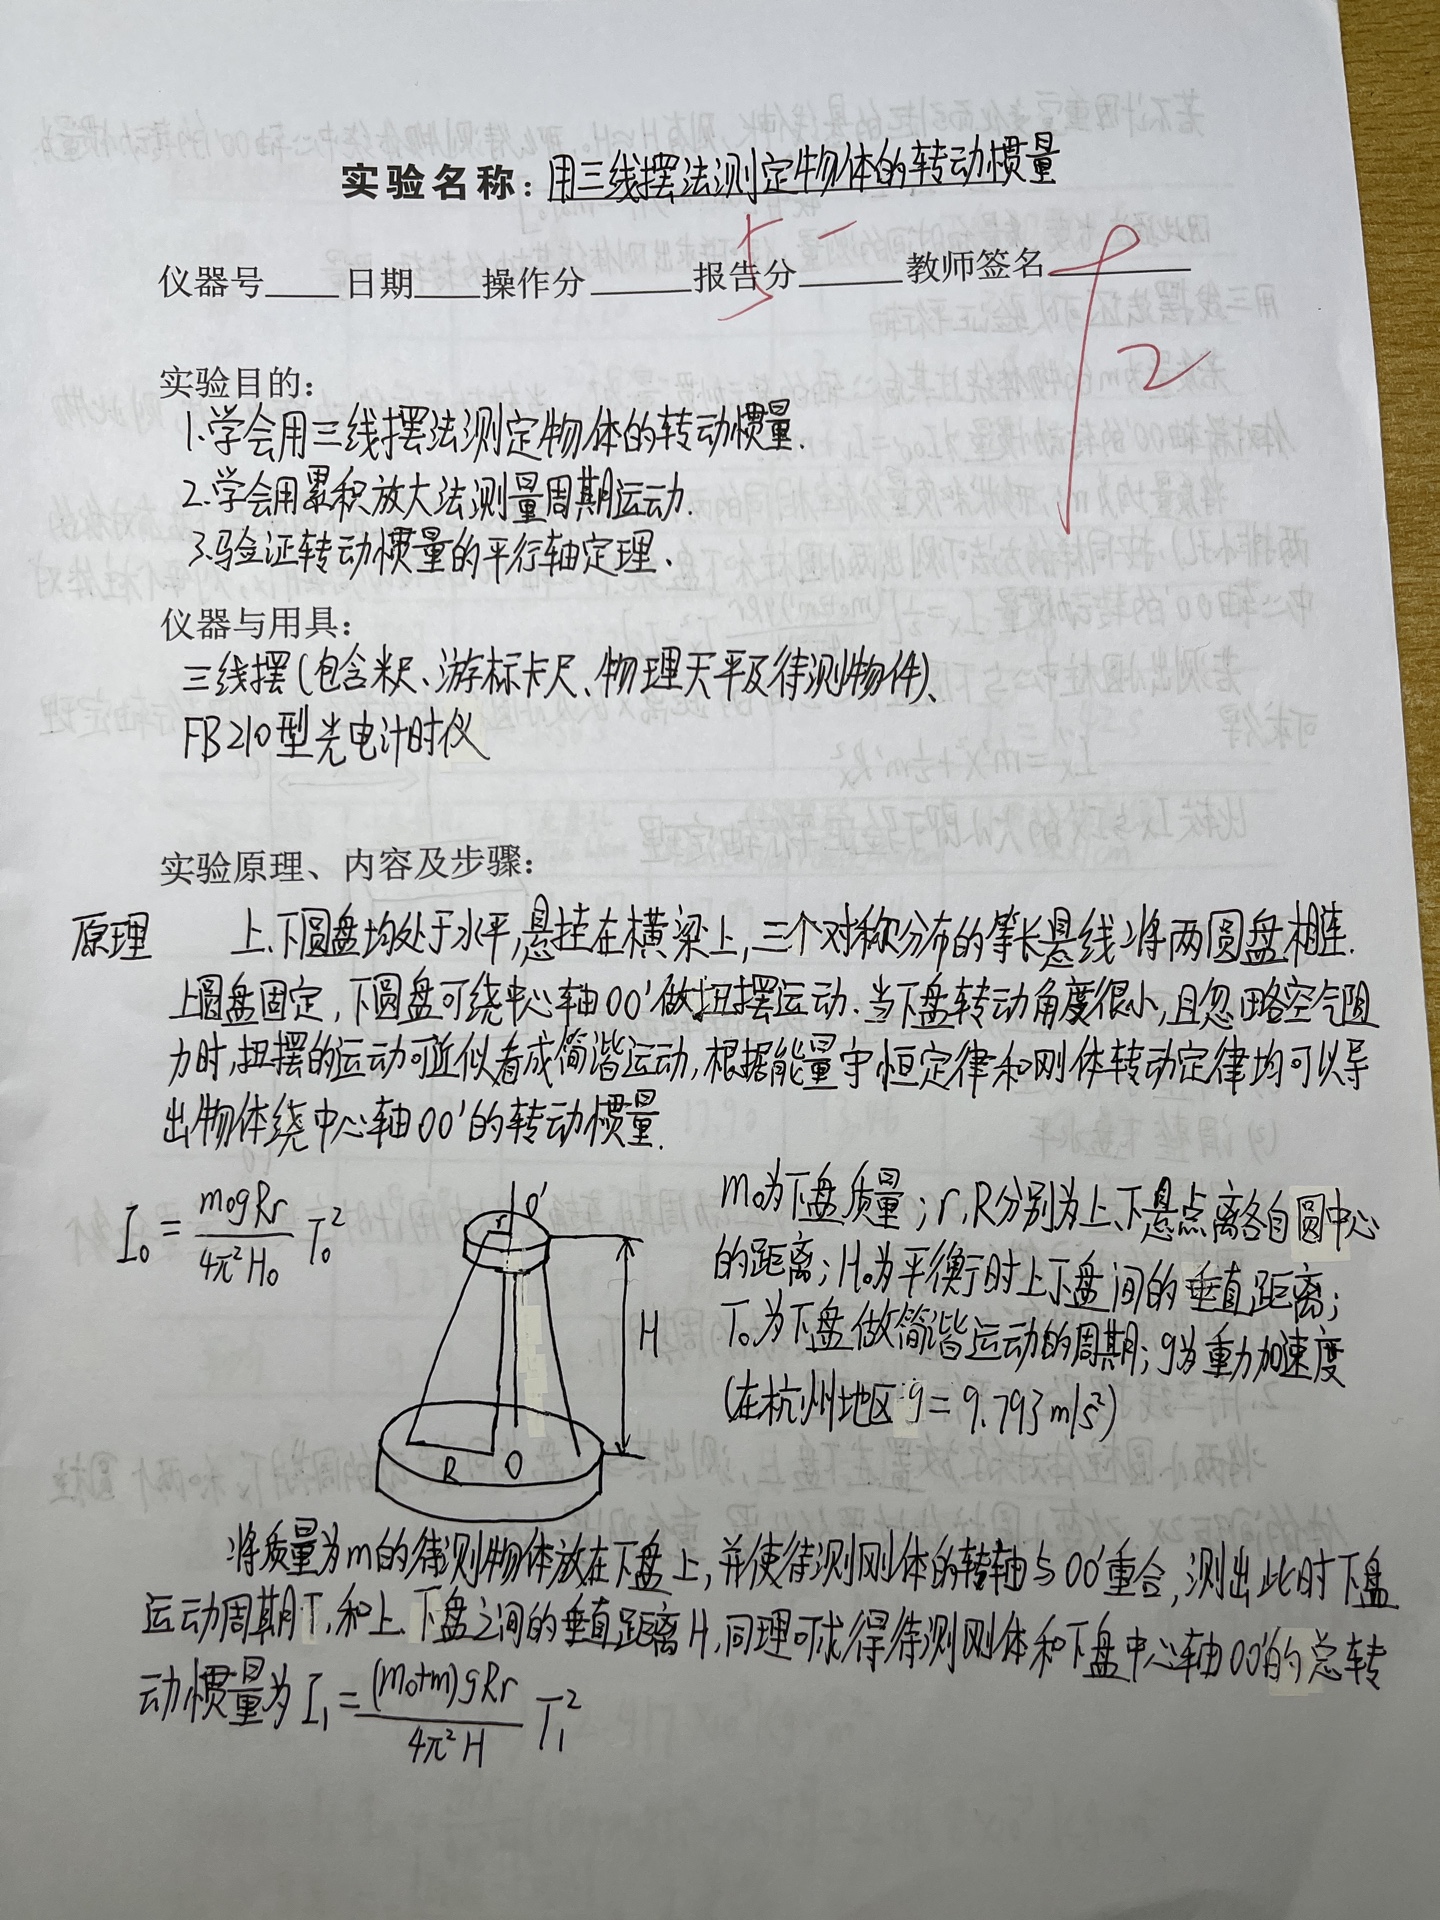 实验名称：用三线摆法测定物体的转动惯量
仪器号____日期____操作分______报告分______教师签名________
实验目的：
1.学会用三线摆法测定物体的转动惯量.
2.学会用累积放大法测量周期运动.
3.验证转动惯量的平行轴定理、
仪器与用具：
三线摆(包含米尺、游标卡尺、物理天平及待测物件)、
FB210型光电计时仪
实验原理、内容及步骤：
原理 上、下圆盘均处于水平,悬挂在横梁上,三个对称分布的等长悬线将两圆盘相连.
上圆盘固定,下圆盘可绕中心轴OO'做扭摆运动.当下盘转动角度很小,且忽略空气阻
力时,扭摆的运动可近似看成简谐运动,根据能量守恒定律和刚体转动定律均可以导
出物体绕中心轴OO'的转动惯量.
I₀ = m₀gRr/4π²H₀ T₀²
r O'
H
R O
m₀为下盘质量；r,R分别为上、下悬点离各自圆中心
的距离；H₀为平衡时上下盘间的垂直距离；
T₀为下盘做简谐运动的周期；g为重力加速度
(在杭州地区g=9.793m/s²)
将质量为m的待测物体放在下盘上,并使待测刚体的转轴与OO'重合,测出此时下盘
运动周期T,和上、下盘之间的垂直距离H,同理可求得待测刚体和下盘中心轴OO'的总转
动惯量为 I₁ = (m₀+m)gRr/4π²H T₁²